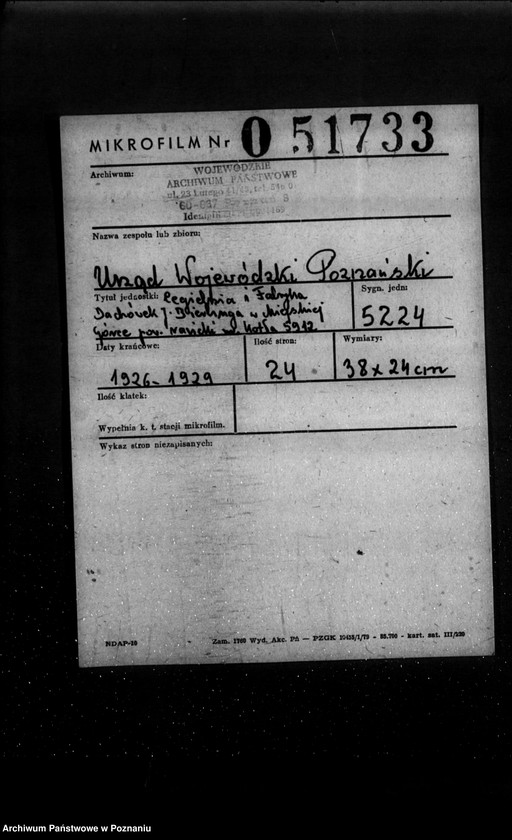 MIKROFILM Nr 0 51733
Archiwum:
WOJEWÓDZKIE
ARCHIWUM PAŃSTWOWE
ul. 23 Lutego 41/43, tel.
60-967 9
Nazwa zespołu lub zbioru:
Urząd Wojewódzki Poznański
Tytuł jednostki: Cegielnia i Fabryka
Dachówek J. w Miejskiej
Górce pow. rawicki Kotła 5912
Sygn. jedn:
5224
Daty krańcowe:
1926-1929
Ilość stron:
24
Wymiary:
38 x 24 cm
Ilość klatek:
Wypełnia k. t. stacji mikrofilm.
Wykaz stron niezapisanych:
NDAP-10
Zam. 1760 Wyd. Akc. PZGK kart. sat. III/280
Archiwum Państwowe w Poznaniu